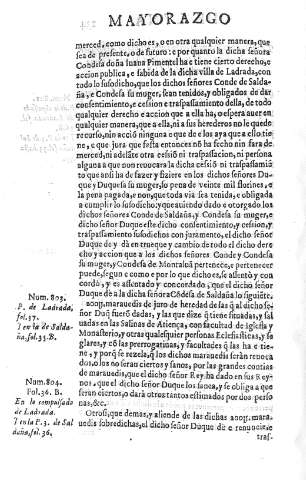 MAYORAZGO
merced, como dicho es, o en otra qualquier manera, que
sea de presente, o de futuro: e por quanto la dicha señora
Condesa doña Iuana Pimentel ha e tiene cierto derecho, e
accion publica, e sabida de la dicha villa de Ladrada, con
todo lo susodicho, que los dichos señores Conde de Salda-
ña, e Condesa su muger, sean tenidos, y obligados de dar
consentimiento, e cession e traspassamiento della, de todo
qualquier derecho e accion que a ella ha, o espera auer en
qualquier manera, que a ella, ni a sus herederos no le quede
recurso, nin acciō ninguna o que de los aya que a ello tie-
ne, e que jura que fasta entonces nō ha fecho nin fara de
merced, ni adelāte otra cessiō ni traspassacion, ni persona
alguna a que con reuocara la dicha cessiō ni traspassamiē
to que anti ha de fazer y fiziere en los dichos señores Du-
que y Duquesa su muger, so pena de veinte mil florines, e
la pena pagada, e non, que toda via sea tenida, e obligada
a cumplir lo susodicho, y que asiendo dado e otorgado los
dichos señores Conde de Saldaña, y Condesa su muger, e
dicho señor Duque este dicho consentimiento, y cession, y
traspassamiento susodicho con juramento, el dicho señor
Duque de y dà en trueque y cambio de todo el dicho dere
cho y accion que a los dichos señores Conde y Condesa
su muger, y Condesa de Montaluā pertenece, e pertenecer
puede, segun e como e por lo que dicho es, e assento y con
cordò, y es assentado y concordado, que el dicho señor
Duque dè a la dicha señora Cōdesa de Saldaña lo siguiēte.
200ɱ. marauedis de juro de heredad de las ꝗ el dicho se-
ñor Duꝗ fuerō dadas, y las que dize ꝗ tiene situadas, y sal
uadas en las Salinas de Atiença, con facultad de iglesia y
Monasterio, y otras qualesquier personas Eclesiasticas, y se
glares, y cō las prerrogatiuas, y facultades ꝗ las ha e tie-
ne, y porꝗ se rezela, ꝗ los dichos marauedis serān reuoca
dos, o los no seran ciertos y sanos, por las grandes contias
de marauedis, que el dicho señor Rey ha dado en sus Rey-
nos, e ꝗ el dicho señor Duque los sanea, y se obliga a que
seran ciertos, o darà otros tantos estimados por dos perso
nas, &c.
Otrosi, que demas, y aliende de las dichas 200ɱ. mara-
uedis sobredichas, el dicho señor Duque dè e renuncie, e
tras-
Num. 803.
P. de Ladrada,
fol. 37.
I en la de Salda-
ña, fol. 35. B.
Num. 804.
Fol. 36. B.
En la compulsada
de Ladrada.
I en la P. 3. de Sal
daña, fol. 36.